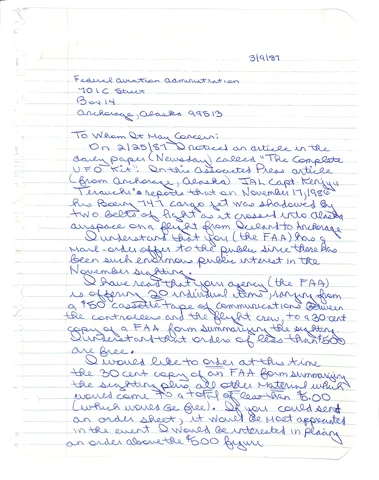 3/9/87
Federal Aviation Administration
701 C Street
Box 14
Anchorage, Alaska 99513
To Whom It May Concern:
On 2/25/87 I noticed an article in the
daily paper (Newsday) called "The Complete
UFO Kit". In this Associated Press article
(from Anchorage, Alaska) JAL Capt Kenjyu
Terauchi reports that on November 17, 1986
his Boeing 747 cargo jet was shadowed by
two belts of light as it crossed into Alaska
airspace on a flight from Iceland to Anchorage.
I understand that you (the FAA) has a
mail-order offer to the public since there has
been such enormous public interest in the
November sighting.
I have read that your agency (the FAA)
is offering 20 individual items; ranging from
a $50 cassette tape of communications between
the controllers and the flight crew, to a 30 cent
copy of a FAA form summarizing the sighting.
I understand that orders of less than $5.00
are free.
I would like to order at this time
the 30 cent copy of an FAA form summarizing
the sighting plus all other material which
would come to a total of less than $5.00
(which would be free). If you could send
an order sheet; it would be most appreciated
in the event I would be interested in placing
an order above the $5.00 figure